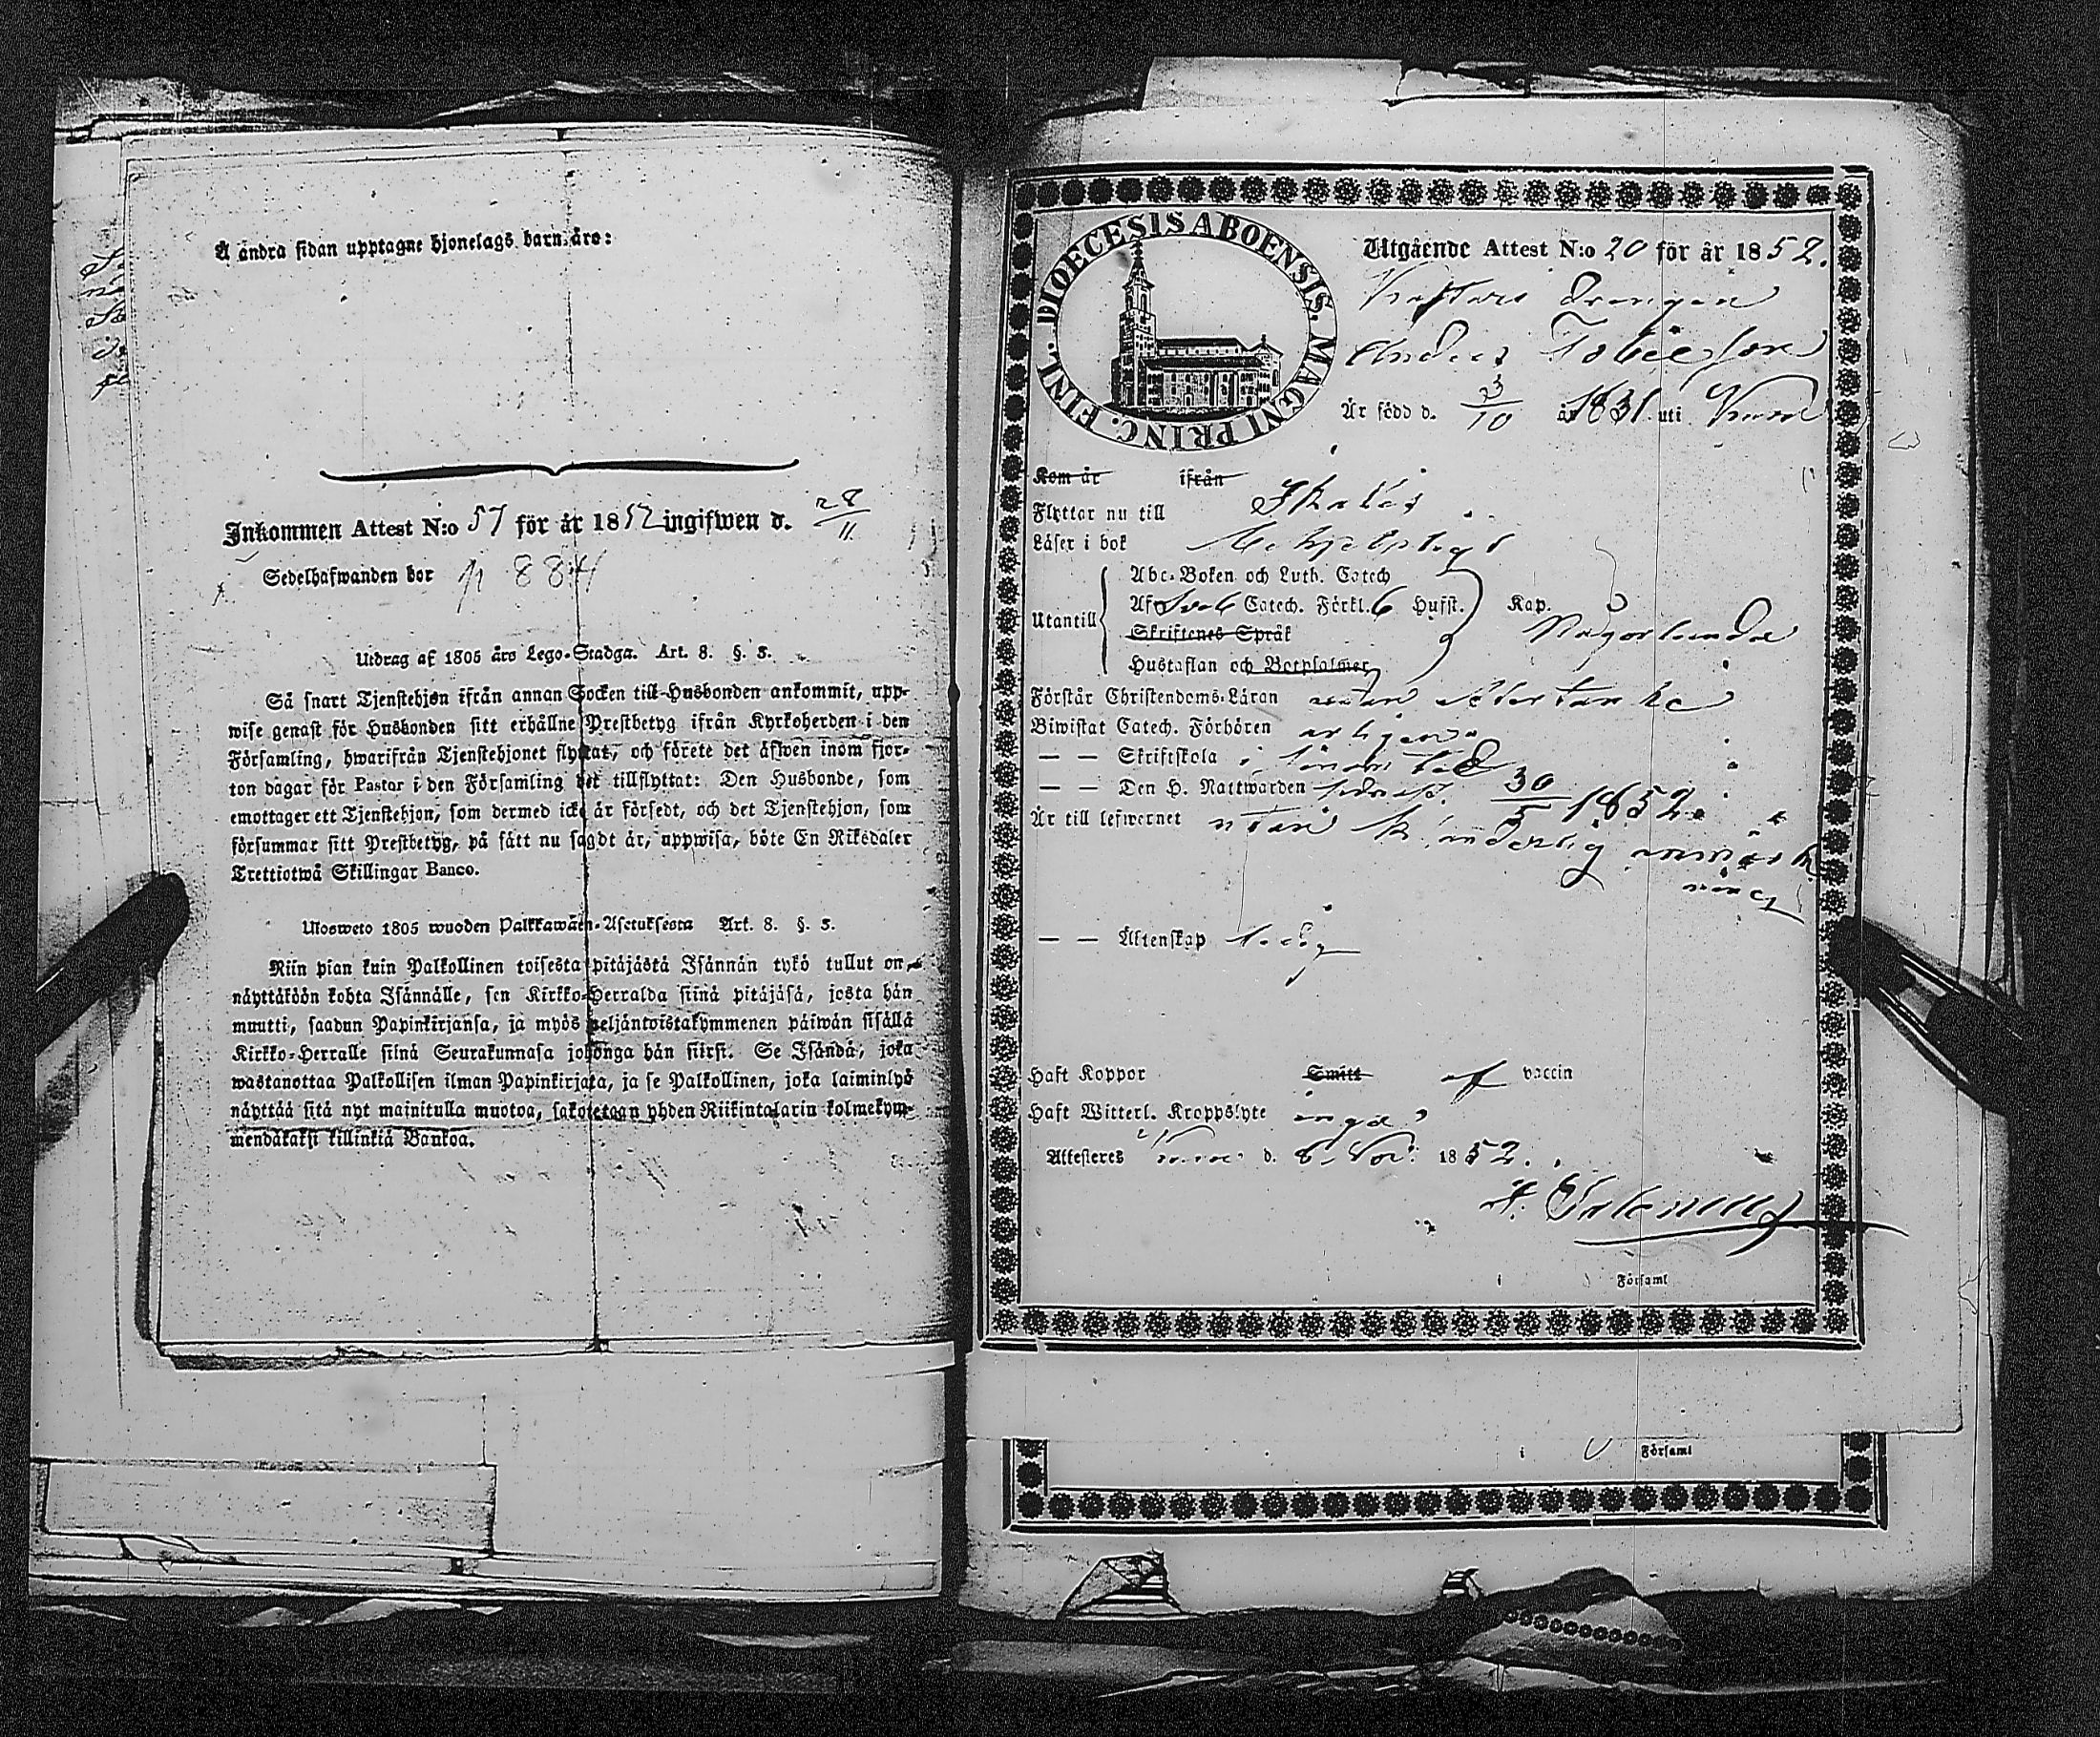 A andra sidan upptagne hjonelags barn äro:
Inkommen Attest N:o 57 för år 1852 ingifwen d. 28/11
Sedelhafwanden bor p 884
Utdrag af 1805 års Lego-Stadga. Art. 8. §. 5.
Så snart Tjenstehjon ifrån annan Socken till Husbonden ankommit, upp-
wise genast för Husbonden sitt erhållne Prestbetyg ifrån Kyrkoherden i den
Församling, hwarifrån Tjenstehjonet flyttat, och förete det äfwen inom fjor-
ton dagar för Pastor i den Församling det tillflyttat: Den Husbonde, som
emottager ett Tjenstehjon, som dermed icke är försedt, och det Tjenstehjon, som
försummar sitt Prestbetyg, på sätt nu sagdt är, uppwisa, böte En Riksdaler
Trettiotwå Skillingar Banco.
Ulosweto 1805 wuoden Palkkawäen-Asetuksesta Art. 8. §. 5.
Niin pian kuin Palkollinen toisesta pitäjästä Isännän tykö tullut on,
näyttäköön kohta Isännälle, sen Kirkko-Herralda siinä pitäjäsä, josta hän
muutti, saadun Papinkirjansa, ja myös neljäntoistakymmenen päiwän sisällä
Kirkko-Herralle siinä Seurakunnasa johonga hän siirsi. Se Isändä, joka
wastanottaa Palkollisen ilman Papinkirjata, ja se Palkollinen, joka laiminlyö
näyttää sitä nyt mainitulla muotoa, sakotetaan yhden Riikintalarin kolmekym-
mendäkaksi killinkiä Bankoa.
DIOECESIS ABOENSIS. MAGNI PRINC. FINL.
Utgående Attest N:o 20 för år 1852.
Drengen
Anders Tobiesson
Är född d. 23/10 år 1831 uti
Kom år ifrån
Flyttar nu till
Läser i bok
Utantill
Abc-Boken och Luth. Catech
Af Sveb Catech. Förkl. 6 Husst. Kap. 3
Skriftenes Språk Någorlunda
Hustaflan och Botpsalmer
Förstår Christendoms-Läran
Biwistat Catech. Förhören
— — Skriftskola
— — Den H. Nattwarden sednast 30/5 1852.
Är till lefwernet utan anmärk
ning
— — Äktenskap ledig
Haft Koppor Smitt af vaccin
Haft Witterl. Kroppslyte inga
Attesteres d. 6 Nov: 1852.
i Församl
i Församl